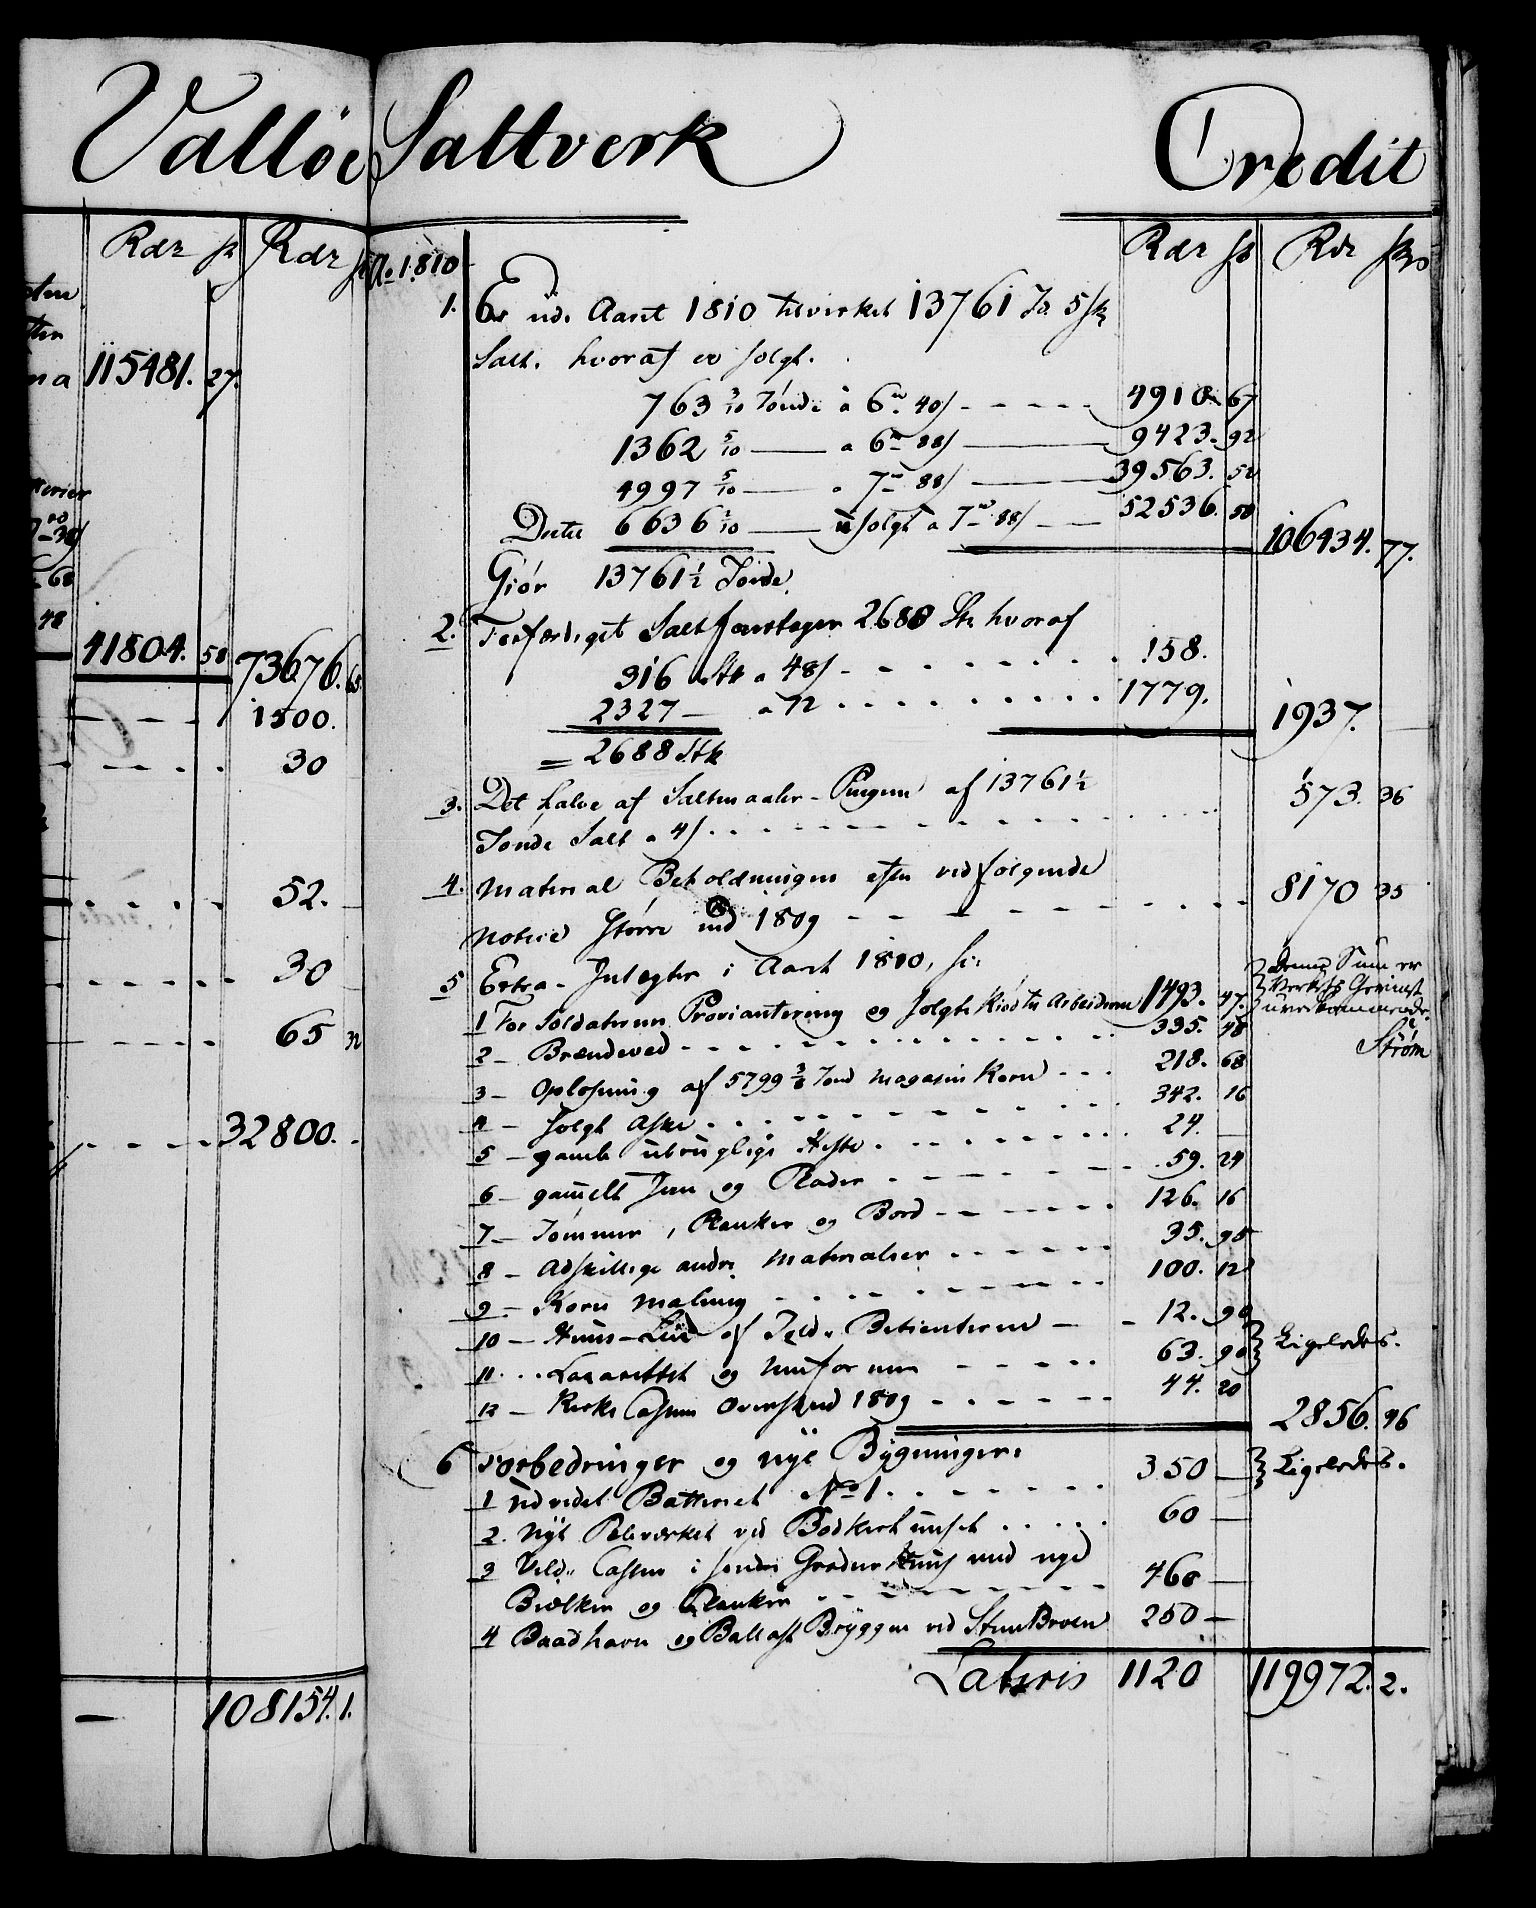 Valløe Saltverk Credit
Rdr ß Rdr ß
115481. 27.
41804. 58 73676. 65
1500.
30
52.
30
65 72
32800.
108154. 1.
Ao 1810 Rdr ß Rdr ßr
1. Er udi Aaret 1810 tilvirket 13761 To. 5 sk
Salt. hvoraf er solgt.
763 3/10 Tønde a 6 rd 40 ß 4910 67
1362 5/10 a 6 rd 88 ß 9423. 92
4997 5/10 a 7 rd 88 ß 39563. 50
Dette 6636 2/10 usolgt a 7 rd 88 ß 52536. 58 106434. 77.
Giør 13761 1/2 Tønde.
2. Forfærdiget Salt 2688 Stk hvoraf
316 Stk a 48 ß 158.
2327 a 72 1779. 1937.
= 2688 Stk
3. Det halve af Saltmaaler-Pengene af 13761 1/2 573. 36
Tønde Salt a 4 ß
4. Material Beholdningen efter vedfølgende 8170 35
Notice større end 1809
5 Extra-Indtægter i Aaret 1810, s:
1 For Soldaternes Proviantering og solgte Kiød til Arbeiderne 1493. 47.
Denne Sum er
Verkets Gevinst
uvedkommende.
Strøm
2 - Brændeved 335. 48
3 - Opløsning af 5799 3/8 Tønd Magasin Korn 218. 68
4 - solgt Aske 342. 16
5 - gamle ubrugelige Heste 24.
6 - gamelt Jern og Plader 59. 24
7 - Tømmer, Planker og Bord 126. 16
8 - Adskillige andre Materialier 35. 95
9 - Korn maling 100. 12
10 - Huus-Leie af Betienterne 12. 90
11 Lazarettet og 63. 90 Ligeledes.
12 - Kirke Cassens Overskud 1809 44. 20
2856. 46
6 Forbedringer og nye Bygninger: Ligeledes.
1 Udvidet Batteriet No 1. 350
2. Nyt Bolverket ved Bødkerhuuset 60
3 Veld. Cassen i søndre Graderhuus med nye
Bielker og Planker 460
4 Baadhavn og Ballast Bryggen ved SteenBroen 250
Lateris 1120 119972. 2.